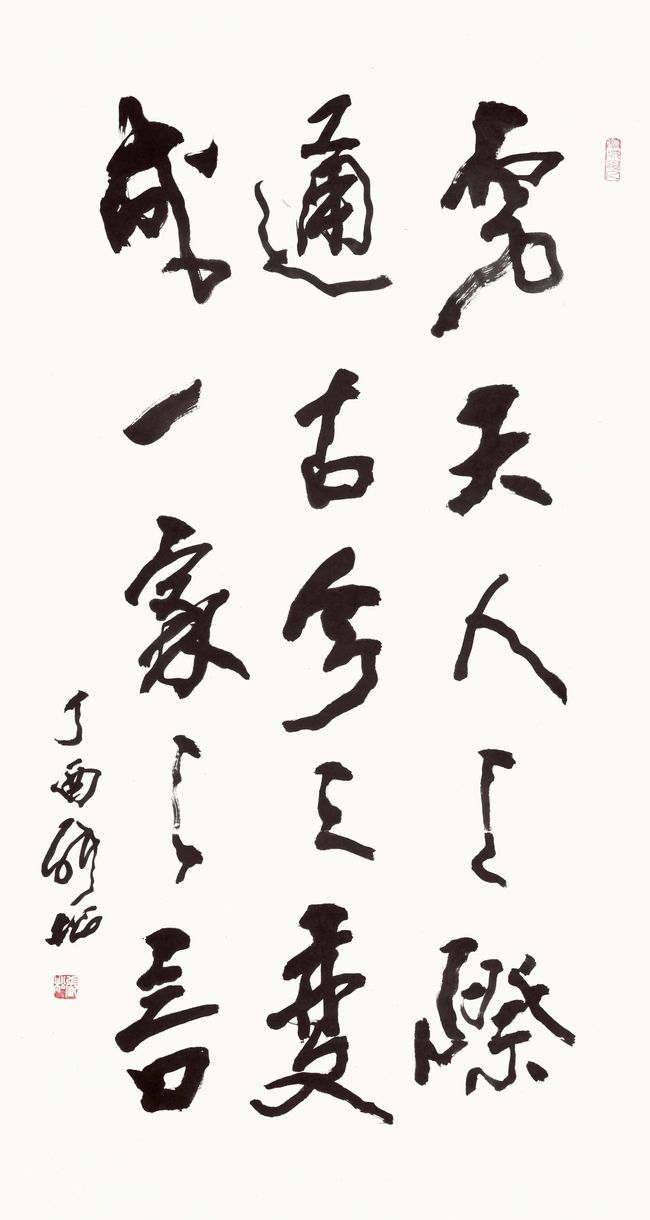 究天人之際
通古今之變
成一家之言
丁酉